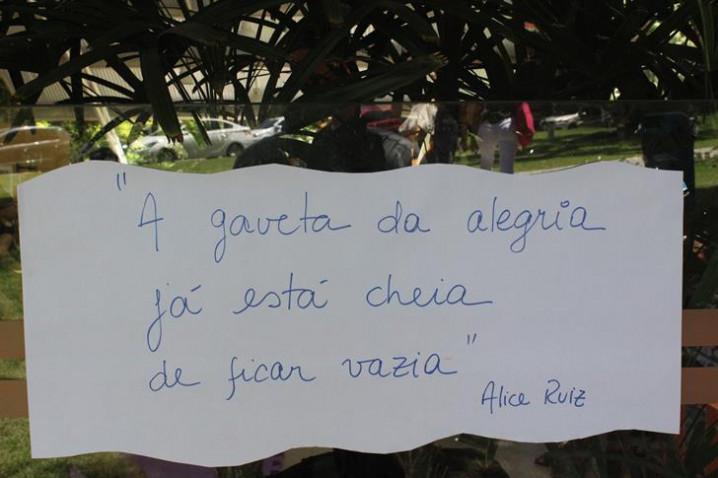 "A gaveta da alegria
já está cheia
de ficar vazia"
Alice Ruiz